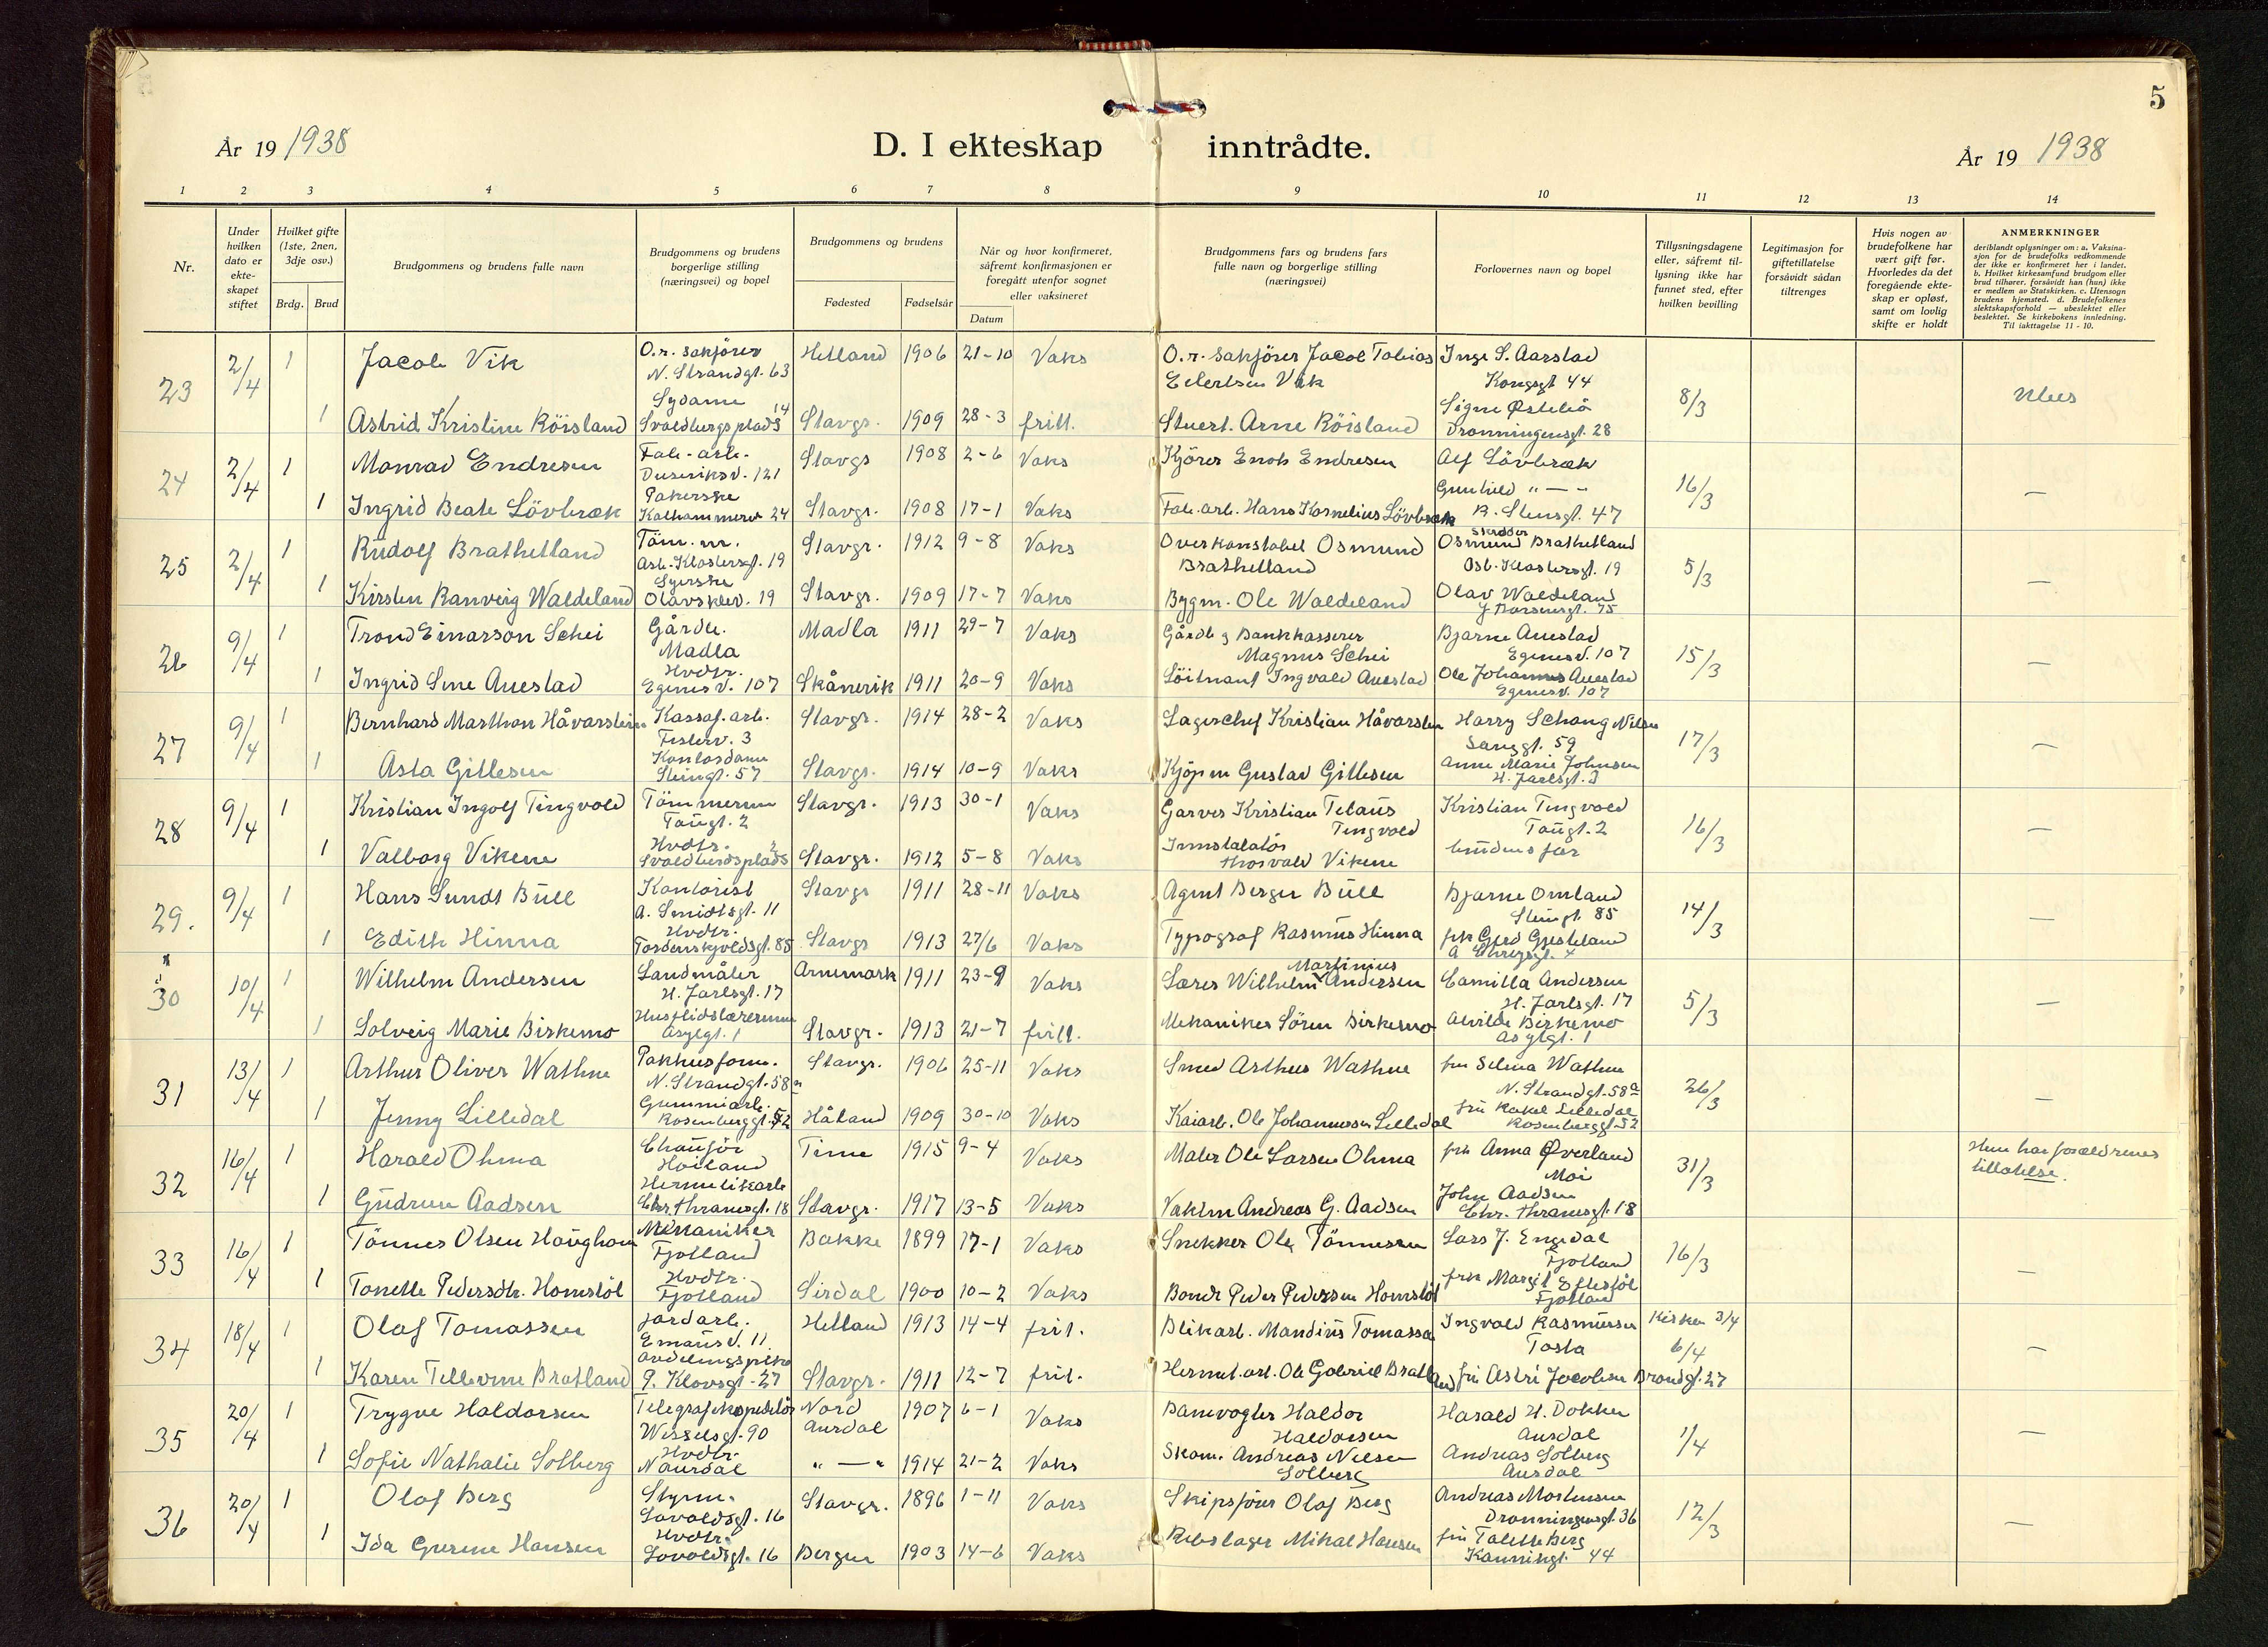 5
År 19 1938
D. I ekteskap inntrådte.
År 19 1938
1 2 3 4 5 6 7 8 9 10 11 12 13 14
Nr.
Under hvilken dato er ekte-skapet stiftet
Hvilket gifte (1ste, 2nen, 3dje osv.)
Brdg. Brud
Brudgommens og brudens fulle navn
Brudgommens og brudens borgerlige stilling (næringsvei) og bopel
Brudgommens og brudens
Fødested Fødselsår
Når og hvor konfirmeret, såfremt konfirmasjonen er foregått utenfor sognet eller vaksineret
Datum
Brudgommens fars og brudens fars fulle navn og borgerlige stilling (næringsvei)
Forlovernes navn og bopel
Tillysningsdagene eller, såfremt til-lysning ikke har funnet sted, efter hvilken bevilling
Legitimasjon for giftetillatelse forsåvidt sådan tiltrenges
Hvis nogen av brudefolkene har vært gift før. Hvorledes da det foregående ekte-skap er opløst, samt om lovlig skifte er holdt
ANMERKNINGER
deriblandt oplysninger om: a. Vaksina-sjon for de brudefolks vedkommende der ikke er konfirmeret her i landet. b. Hvilket kirkesamfund brudgom eller brud tilhører, forsåvidt han (hun) ikke er medlem av Statskirken. c. Utensogn brudens hjemsted. d. Brudefolkenes slektskapsforhold — ubeslektet eller beslektet. Se kirkebokens innledning. Til iakttagelse 11 - 10.
23 2/4 1 Jacob Vik O.r. sakförer N. Strandgt. 63 Hetland 1906 21-10 Vaks O.r. sakförer Jacob Tobias Eilertsen Vik Inge S. Aarstad Kongsgt 44 8/3 Ubes
1 Astrid Kristine Röisland Sydame Svoldbergsplads 14 Stavgr. 1909 28-3 fritt. Stuert. Arne Röisland Signe Østebö Dronningensgt. 28
24 2/4 1 Monrad Endresen Fab.-arb. Duseviksv. 121 Stavgr 1908 2-6 Vaks Kjörer Enok Endresen Alf Lövbræk 16/3 —
1 Ingrid Beate Lövbræk Pakerske Kalhammerv 24 Stavgr. 1908 17-1 Vaks Fab. arb. Hans Kornelius Lövbræk Gunhild " — " R. Stensgt. 47
25 2/4 1 Rudolf Brathetland Töm. m. Asb. Klostersgt. 19 Stavgr. 1912 9-8 Vaks Overkonstabel Osmund Brathetland Skredder Osmund Brathetland Asb. Klostersgt. 19 5/3 —
1 Kirsten Ranveig Waldeland Syerske Olavsklev. 19 Stavgr. 1909 17-7 Vaks Bygm. Ole Waldeland Olav Waldeland 75
26 9/4 1 Trond Einarson Schei Gårdb. Madla Madla 1911 29-7 Vaks Gårdb og Bankkasserer Magnus Schei Bjarne Auestad Egenesv. 107 15/3 —
1 Ingrid Sine Auestad Hvdtr. Egenesv. 107 Skånevik 1911 20-9 Vaks Löitnant Ingvald Auestad Ole Johannes Auestad Egenesv. 107
27 9/4 1 Bernhard Marthon Håvarstein Kassaf. arb. Fiskerv. 3 Stavgr. 1914 28-2 Vaks Lagerchef Kristian Håvarstein Harry Schang Nilsen 59 17/3 —
1 Asta Gillesen Kontordame Steingt. 57 Stavgr. 1914 10-9 Vaks Kjöpm Gustav Gillesen Anne Marie Johnsen H. Jarlsgt. 3
28 9/4 1 Kristian Ingolf Tingvold Tömmerm Taugt. 2 Stavgr. 1913 30-1 Vaks Garver Kristian Telaus Tingvold Kristian Tingvold Taugt. 2 16/3 —
1 Valborg Vikene Hvdtr. Svoldbergsplads 2 Stavgr. 1912 5-8 Vaks Innstalatör Thorvald Vikene brudens far
29. 9/4 1 Hans Sundt Bull Kontorist A. Smidtsgt. 11 Stavgr 1911 28-11 Vaks Agent Berger Bull Bjarne Omland Steingt. 85 14/3 —
1 Edith Hinna Hvdtr. Tordenskjoldsgt. 85 Stavgr 1913 27/6 Vaks Typograf Rasmus Hinna frk Gerd Gjesteland
30 10/4 1 Wilhelm Andersen Landmåler H. Jarlsgt. 17 Arnemark 1911 23-9 Vaks Lærer Wilhelm Martinius Andersen Camilla Andersen H. Jarlsgt. 17 5/3 —
1 Solveig Marie Birkemo Husflidslærerinne Asylgt. 1 Stavgr. 1913 21-7 fritt. Mekaniker Sören Birkemo Alvilde Birkemo Asylgt. 1
31 13/4 1 Arthur Oliver Wathne Pakhusform. N. Strandgt. 58a Stavgr. 1906 25-11 Vaks Smed Arthur Wathne fru Selma Wathne N. Strandgt. 58a 26/3 —
1 Jenny Lilledal Gummiarb. Rosenberggt. 52 Håland 1909 30-10 Vaks Kaiarb. Ole Johannesen Lilledal fru Rakel Lilledal Rosenberggt. 52
32 16/4 1 Harald Ohma Chauför Höiland Time 1915 9-4 Vaks Maler Ole Larsen Ohma frk Anna Øverland Moi 31/3 Hun har foreldrenes tillatelse.
1 Gudrun Aadsen Hermetikarb Chr. Thranesgt. 18 Stavgr. 1917 13-5 Vaks Vaktm Andreas G. Aadsen John Aadsen Chr. Thranesgt. 18
33 16/4 1 Tönnes Olsen Haughom Mekaniker Fjotland Bakke 1899 17-1 Vaks Snekker Ole Tönnessen Lars J. Engedal Fjotland 16/3 —
1 Tonette Pedersdtr. Homstöl Hvdtr. Fjotland Sirdal 1900 10-2 Vaks Bonde Peder Pedersen Homstöl frk Margit Eftestöl Fjotland
34 18/4 1 Olaf Tomassen Jordarb. Emausv. 11 Hetland 1913 14-4 frit. Blikarb. Mandius Tomassen Ingvald Rasmussen Tasta Kirken 3/4 6/4 —
1 Karen Tellevine Bratland Avdelingspike P. Klowsgt. 27 Stavgr. 1911 12-7 frit. Hermet. arb. Ole Gabriel Bratland fru Astri Jacobsen Brandgt. 27
35 20/4 1 Trygve Haldorsen Telegrafekspeditör Wesselsgt. 90 Nord Aurdal 1907 6-1 Vaks Banevogter Haldor Haldorsen Harald H. Dokken Aurdal 1/4 —
1 Sofie Nathalie Solberg Hvdtr. N Aurdal " — " 1914 21-2 Vaks Skom. Andreas Nilsen Solberg Andreas Solberg Aurdal
36 20/4 1 Olaf Berg Styrm. Lovoldsgt. 16 Stavgr. 1896 1-11 Vaks Skipsförer Olaf Berg Andreas Mortensen Dronningensgt. 36 12/3 —
1 Ida Gurine Hansen Hvdtr. Lovoldsgt. 16 Bergen 1903 14-6 Vaks Rebslager Mikal Hansen fru Talette Berg Kanningt. 44